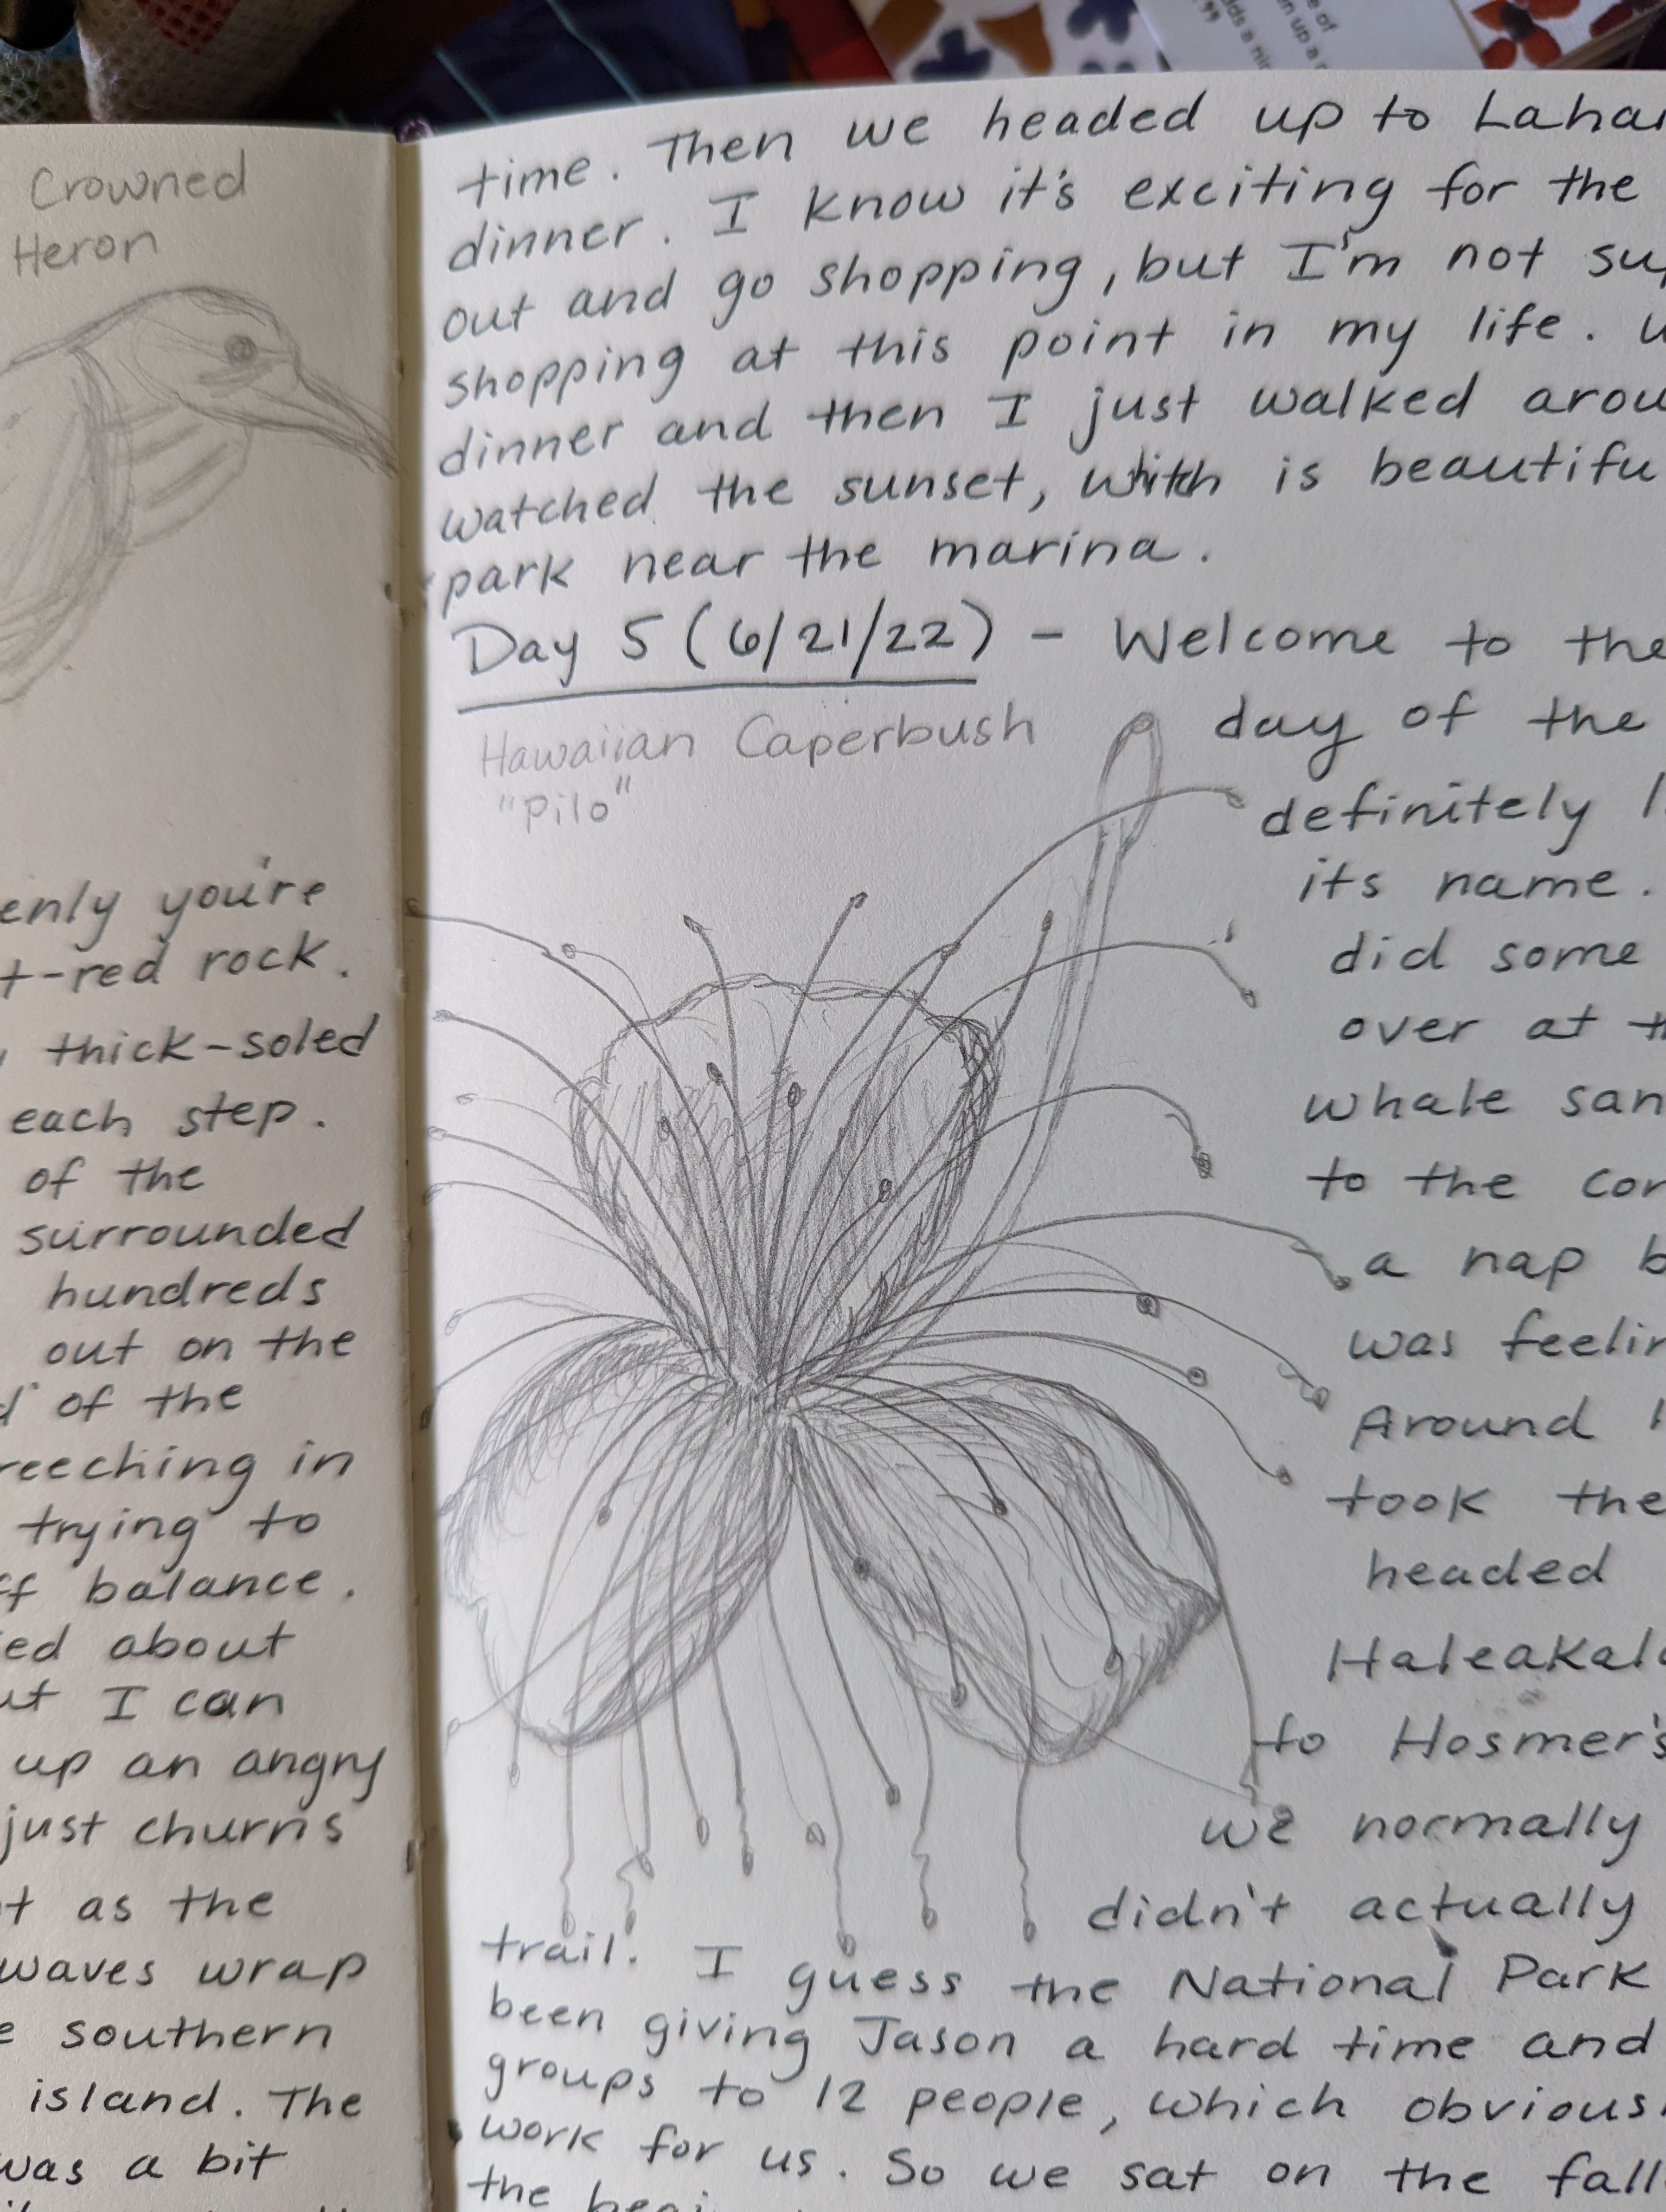 Crowned
Heron
enly you're
t-red rock.
thick-soled
each step.
of the
surrounded
hundreds
out on the
of the
reeching in
trying to
ff balance.
ed about
ut I can
up an angry
just churns
t as the
waves wrap
e southern
island. The
was a bit
time. Then we headed up to Lahai
dinner. I know it's exciting for the
out and go shopping, but I'm not sup
shopping at this point in my life. W
dinner and then I just walked arou
watched the sunset, which is beautifu
park near the marina.
Day 5 (6/21/22) - Welcome to the
Hawaiian Caperbush
"Pilo"
day of the
definitely li
its name.
did some
over at th
whale san
to the cor
a nap b
was feelin
Around 1
took the
headed
Haleakala
to Hosmer's
we normally
didn't actually
trail. I guess the National Park
been giving Jason a hard time and
groups to 12 people, which obvious
work for us. So we sat on the fall
the begi